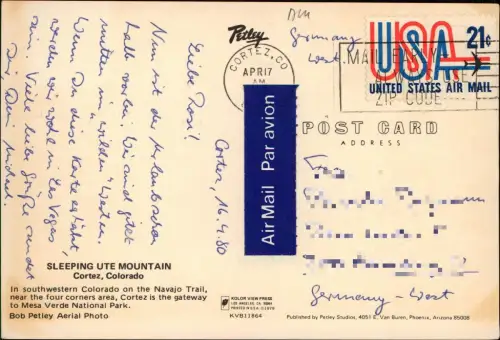 Petley
Germany
West
CORTEZ, CO
APR 17
AM
MAIL EARLY
ZIP CODE
USA 21¢
UNITED STATES AIR MAIL
POST CARD
ADDRESS
Air Mail Par avion
Cortez, 16.4.80
Liebe Rosi!
Nun ist der Urlaub schon
halb vorbei. Wir sind jetzt
mitten im "wilden" Westen.
Wenn Du diese Karte erhältst,
werden wir wohl in Las Vegas
sein. Viele liebe Grüße sendet
Dir Dein Michael.
Frau
Germany - West
SLEEPING UTE MOUNTAIN
Cortez, Colorado
In southwestern Colorado on the Navajo Trail,
near the four corners area, Cortez is the gateway
to Mesa Verde National Park.
Bob Petley Aerial Photo
KOLOR VIEW PRESS
LOS ANGELES, CA
PRINTED IN U.S.A.
KVB11964
Published by Petley Studios, 4051 E. Van Buren, Phoenix, Arizona 85008